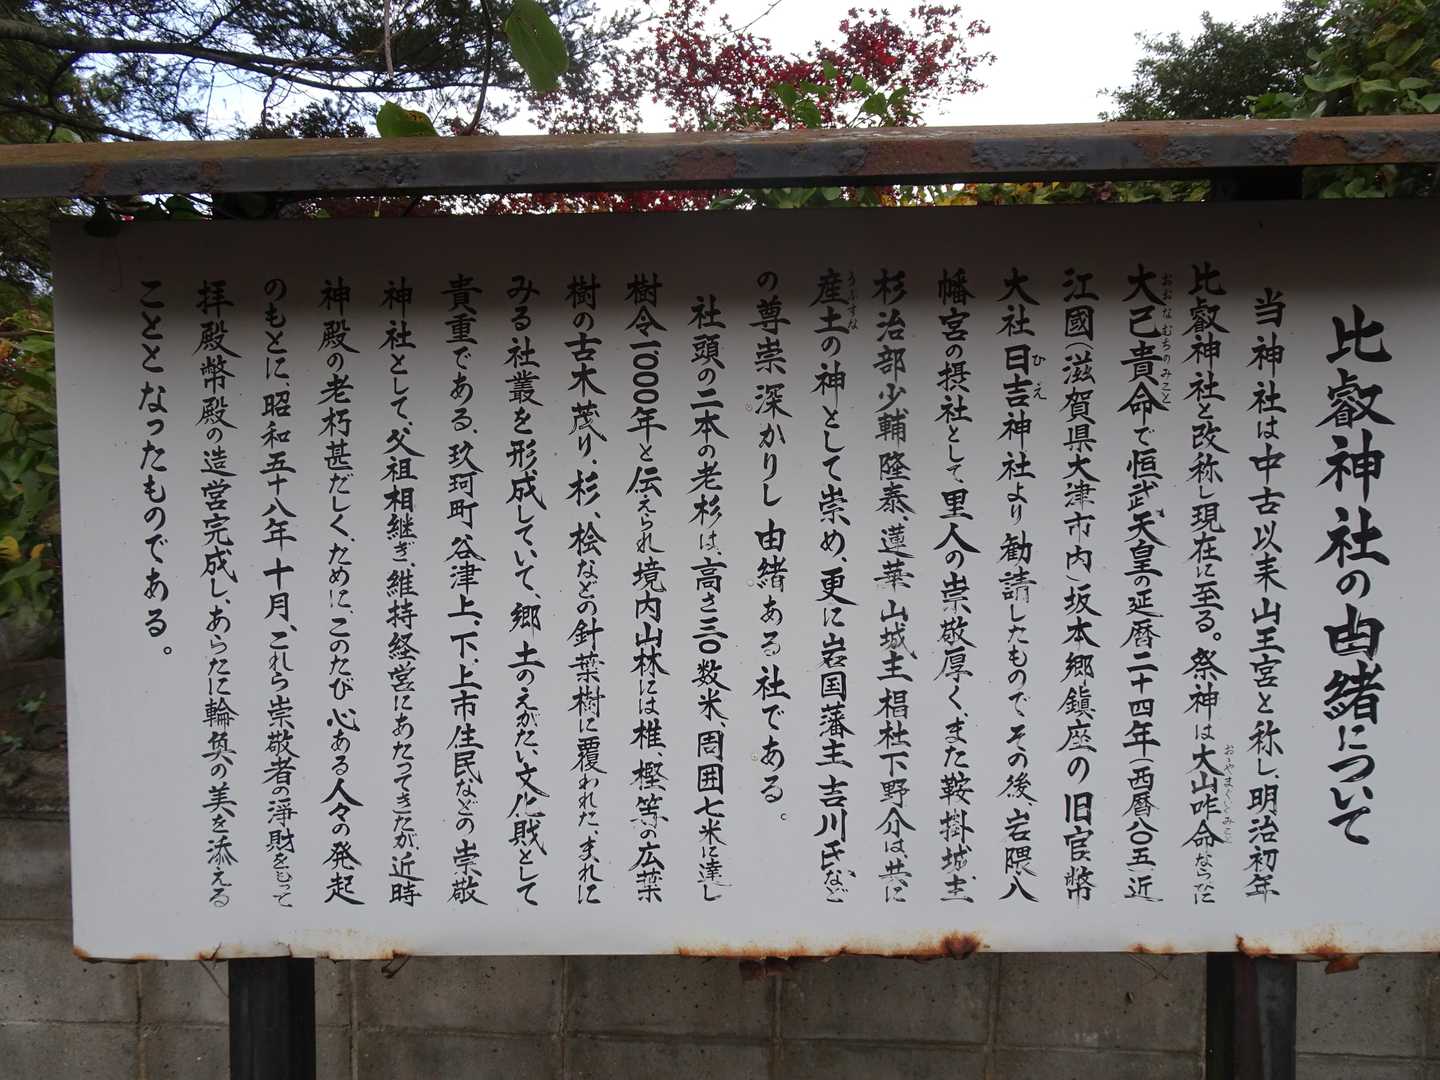 比叡神社の由緒について
当神社は中古以来山王宮と称し、明治初年
比叡神社と改称し現在に至る。祭神は大山咋命ならびに
大已貴命で恒武天皇の延暦二十四年(西暦八〇五)近
江國(滋賀県大津市内)坂本郷鎮座の旧官幣
大社日吉神社より勧請したものでその後、岩隈八
幡宮の摂社として里人の崇敬厚く、また鞍掛城主
杉治部少輔隆泰、蓮華山城主椙杜下野介は共に
産土の神として崇め、更に岩国藩主吉川氏など
の尊崇深かりし由緒ある社である。
社頭の二本の老杉は、高さ三〇数米、周囲七米に達し
樹令一〇〇〇年と伝えられ境内山林には椎、樫等の広葉
樹の古木茂り、杉、桧などの針葉樹に覆われた、まれに
みる社叢を形成していて、郷土のえがたい文化財として
貴重である、玖珂町谷津上、下、上市住民などの崇敬
神社として、父祖相継ぎ、維持経営にあたってきたが、近時
神殿の老朽甚だしく、ために、このたび心ある人々の発起
のもとに、昭和五十八年十月、これら崇敬者の浄財をもって
拝殿幣殿の造営完成し、あらたに輪奐の美を添える
こととなったものである。